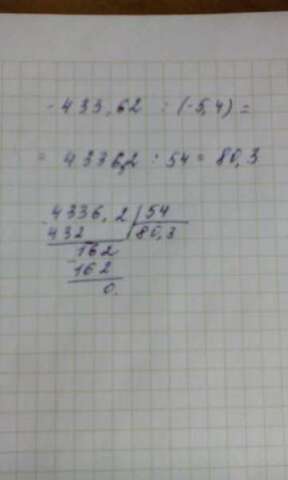 -433,62 : (-5,4) =
= 4336,2 : 54 = 80,3
4336,2 | 54
432 | 80,3
162
162
0.